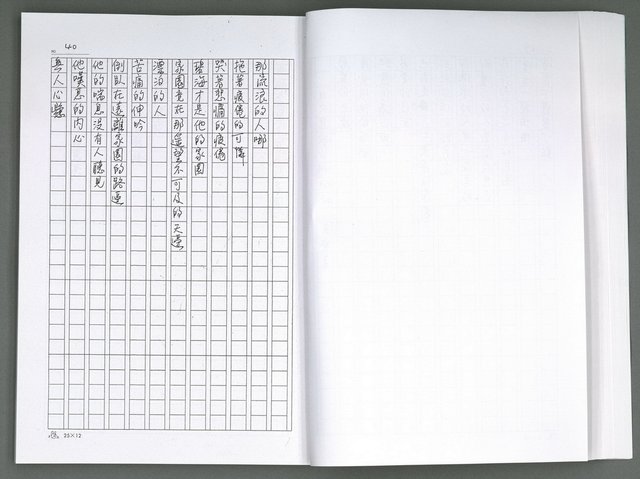 40
那流浪的人哪
拖著疲倦的可憐
哭著悲痛的疲倦
碧海才是他的家園
家園竟在那遙望不可及的天邊
漂泊的人
苦痛的呻吟
倒臥在遠離家園的路邊
他的喘息沒有人聽見
他嘆息的內心
無人心懸
25×12